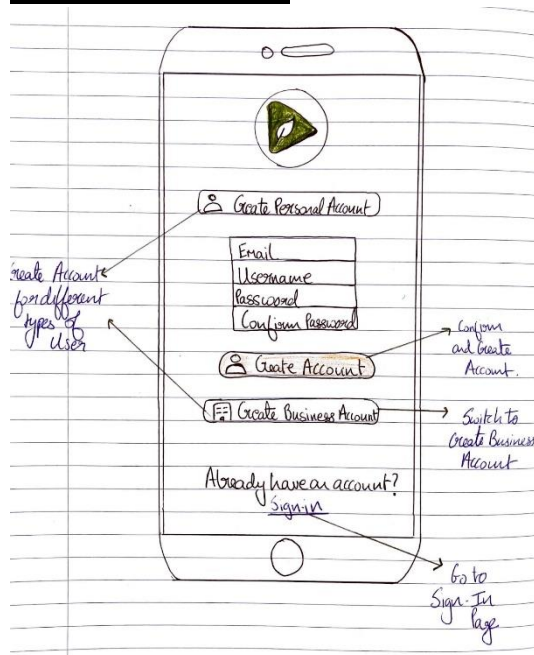 Create Personal Account
Email
Username
Password
Confirm Password
Create Account
Create Business Account
Already have an account?
Sign-in
Create Account
for different
types of
User
Confirm
and Create
Account.
Switch to
Create Business
Account
Go to
Sign-In
Page